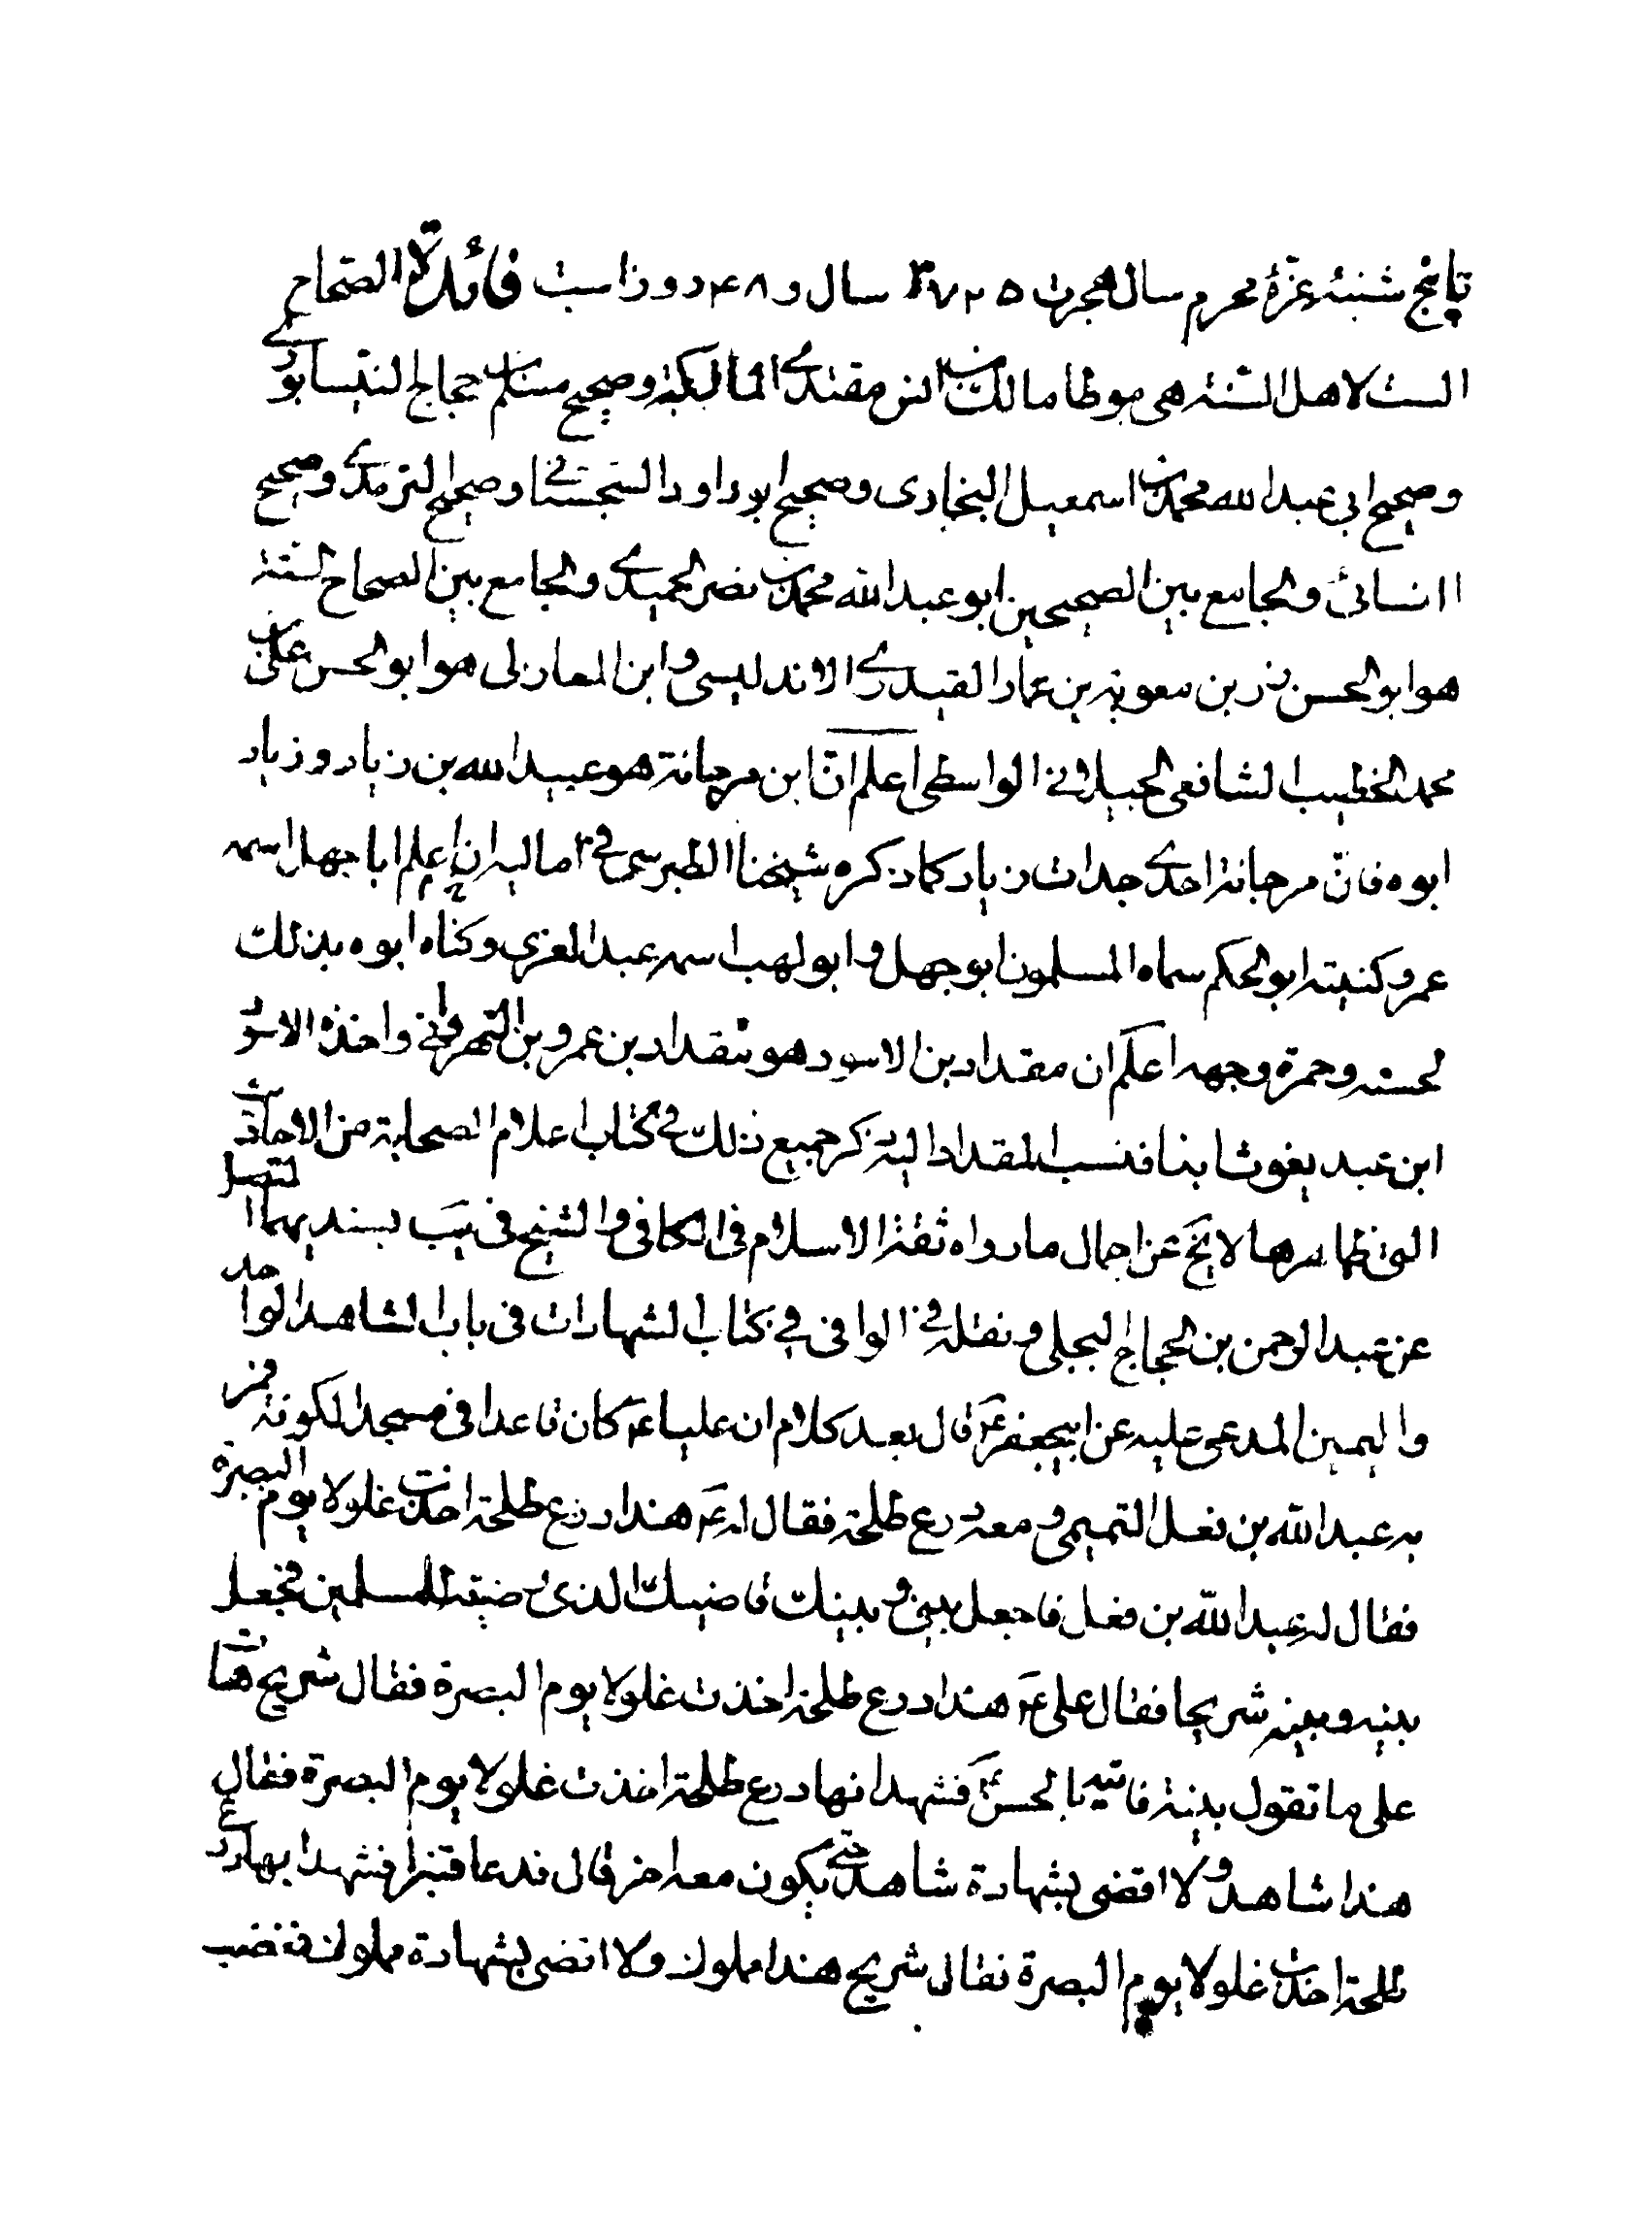 تا پنج شنبهٔ غرّهٔ محرم سال هجرت ۳۷۲۵ سال و ۴۸ دو روز است فائدة الصحاح
الست لاهل السّنة هی موطا مالک بن انس مقتدی المالکیة وصحیح مسلم بن حجاج النیسابوری
وصحیح ابی عبد الله محمد بن اسمعیل البخاری وصحیح ابو داود السجستانی وصحیح الترمذی وصحیح
النسائی والجامع بین الصحیحین ابو عبد الله محمد بن نصر الحمیدی والجامع بین الصحاح الستة
هو ابو الحسن رزین بن معویة بن عمار العبدری الاندلیسی وابن المغازلی هو ابو الحسن علی بن
محمد الخطیب الشافعی الجبلانی الواسطی اعلم انّ ابن مرجانة هو عبید الله بن زیاد وزیاد
ابوه فانّ مرجانة احدی جدات زیاد کما ذکره شیخنا الطبرسی فی امالیه اعلم ان ابا جهل اسمه
عمر وکنیته ابو الحکم سماه المسلمون ابو جهل وابو لهب اسمه عبد العزی وکناه ابوه بذلک
لحسنه وحمرة وجهه اعلم ان مقداد بن الاسود هو مقداد بن عمرو بن النهروانی واخذه الاسود
ابن عبد یغوث ابنا فنسب المقداد الیه ذکر جمیع ذلک فی کتاب اعلام الصحابة من الاحادیث
التی ظاهرها لا یخ عن اجمال ما رواه ثقة الاسلام فی الکافی والشیخ فی یب بسندیهما المتصل
عن عبد الرحمن بن الحجاج البجلی ونقله فی الوافی فی کتاب الشهادات فی باب الشاهد الواحد
والیمین المدعی علیه عن ابیجعفر ع قال بعد کلام ان علیا ع کان قاعدا فی مسجد الکوفة فمر
به عبد الله بن نفل التمیمی ومعه درع طلحة فقال له ع هذا درع طلحة اخذت غلولا یوم البصرة
فقال له عبد الله بن فغل فاجعل بینی وبینک قاضیک الذی رضیته للمسلمین فجعل
بینه وبینه شریحا فقال علی ع هذا درع طلحة اخذت غلولا یوم البصرة فقال شریح هات
علی ما تقول بینة فاتیه بالحسن ع فشهد انها درع طلحة اخذت غلولا یوم البصرة فقال
هذا شاهد ولا اقضی بشهادة شاهد حتی یکون معه اخر قال فدعا قنبرا فشهد انها درع
طلحة اخذت غلولا یوم البصرة فقال شریح هذا مملوک ولا اقضی بشهادة مملوک فغضب